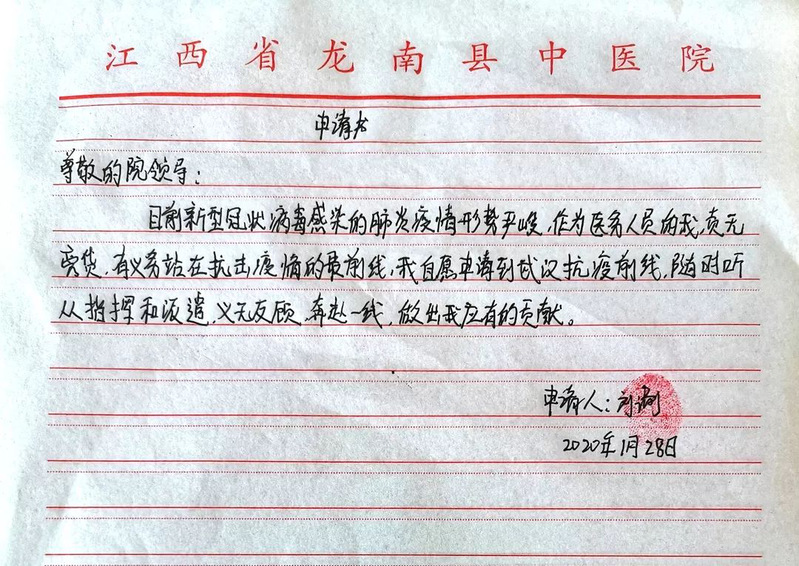 江西省龙南县中医院
申请书
尊敬的院领导：
目前新型冠状病毒感染的肺炎疫情形势严峻，作为医务人员的我，责无
旁贷，有义务站在抗击疫情的最前线，我自愿申请到武汉抗疫前线，随时听
从指挥和派遣，义无反顾，奔赴一线，做出我应有的贡献。
申请人：刘
2020年1月28日